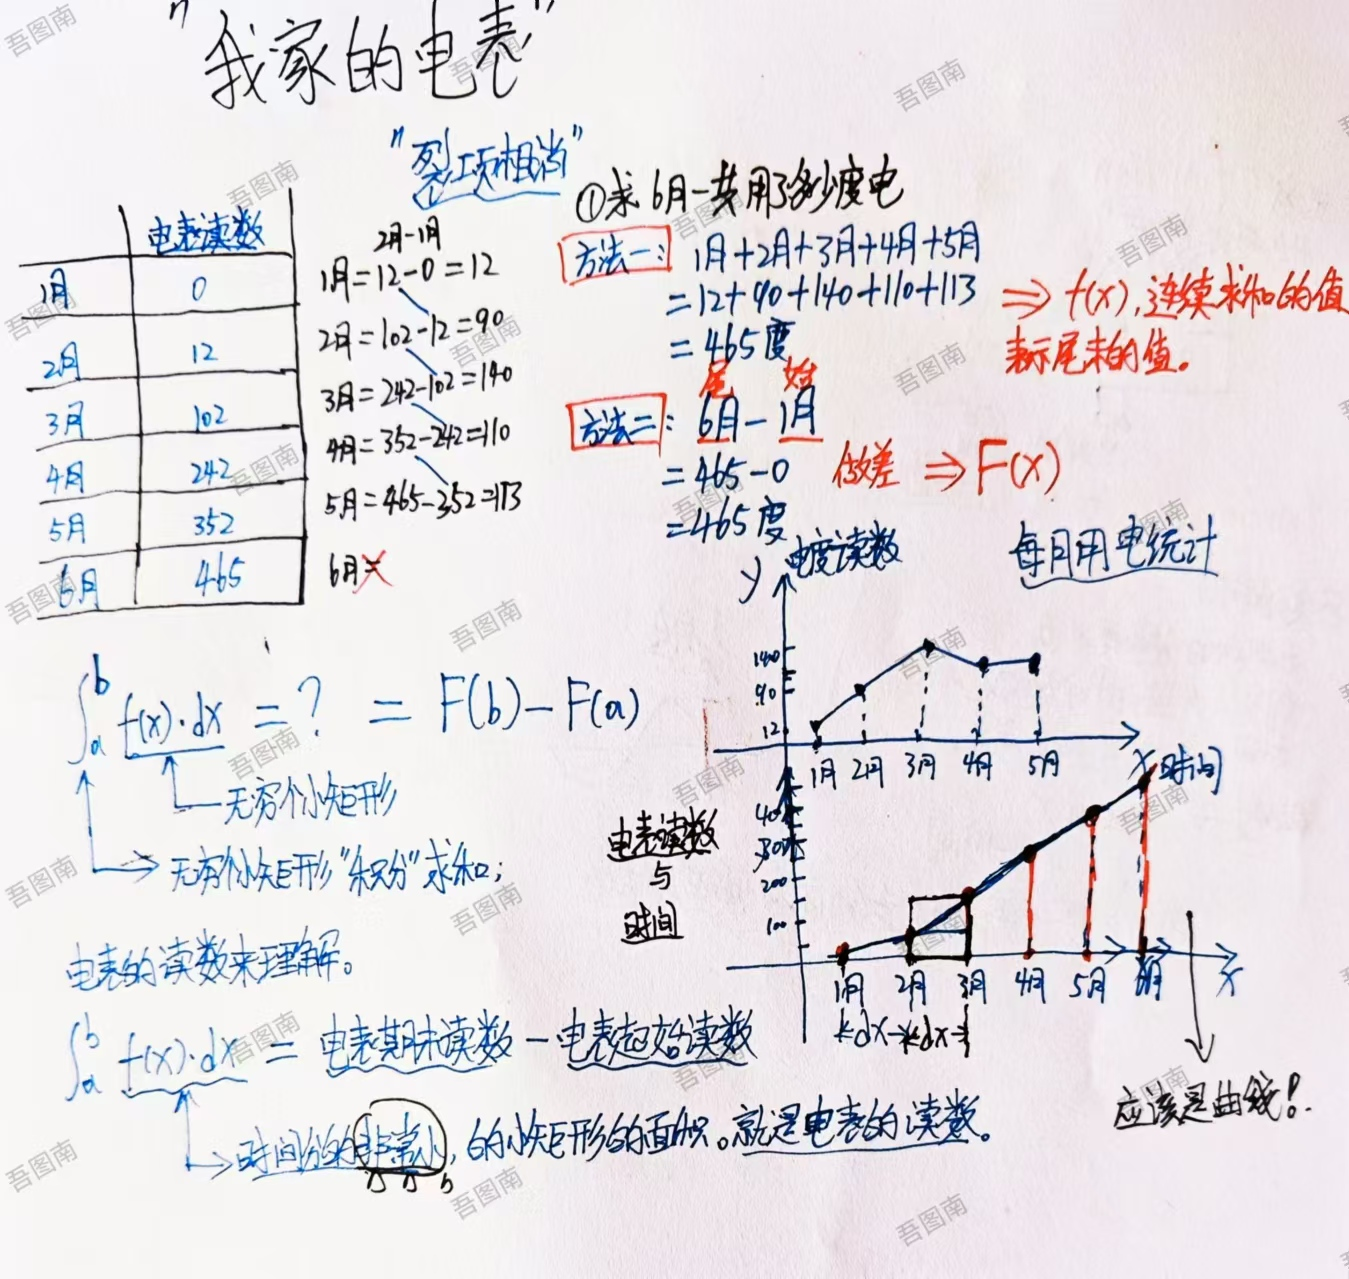 "我家的电表"
"裂项相消"
电表读数
1月 0
2月 12
3月 102
4月 242
5月 352
6月 465
2月-1月
1月=12-0=12
2月=102-12=90
3月=242-102=140
4月=352-242=110
5月=465-352=113
6月=
①求6月一共用了多少度电
方法一: 1月+2月+3月+4月+5月
=12+90+140+110+113
=465度
⇒ f(x),连续求和的值
表示尾末的值。
尾 始
方法二: 6月-1月
=465-0
=465度
做差 ⇒ F(x)
每月用电统计
y 电度读数
140
90
12
1月 2月 3月 4月 5月
X 时间
∫ₐᵇ f(x)·dx = ? = F(b)-F(a)
无穷个小矩形
无穷个小矩形"积分"求和;
电表读数
与
时间
y
400
300
200
100
1月 2月 3月 4月 5月 6月 X
dx dx
应该是曲线!
电表的读数来理解。
∫ₐᵇ f(x)·dx = 电表期末读数-电表起始读数
时间分的非常小,的小矩形的面积。就是电表的读数。
吾图南